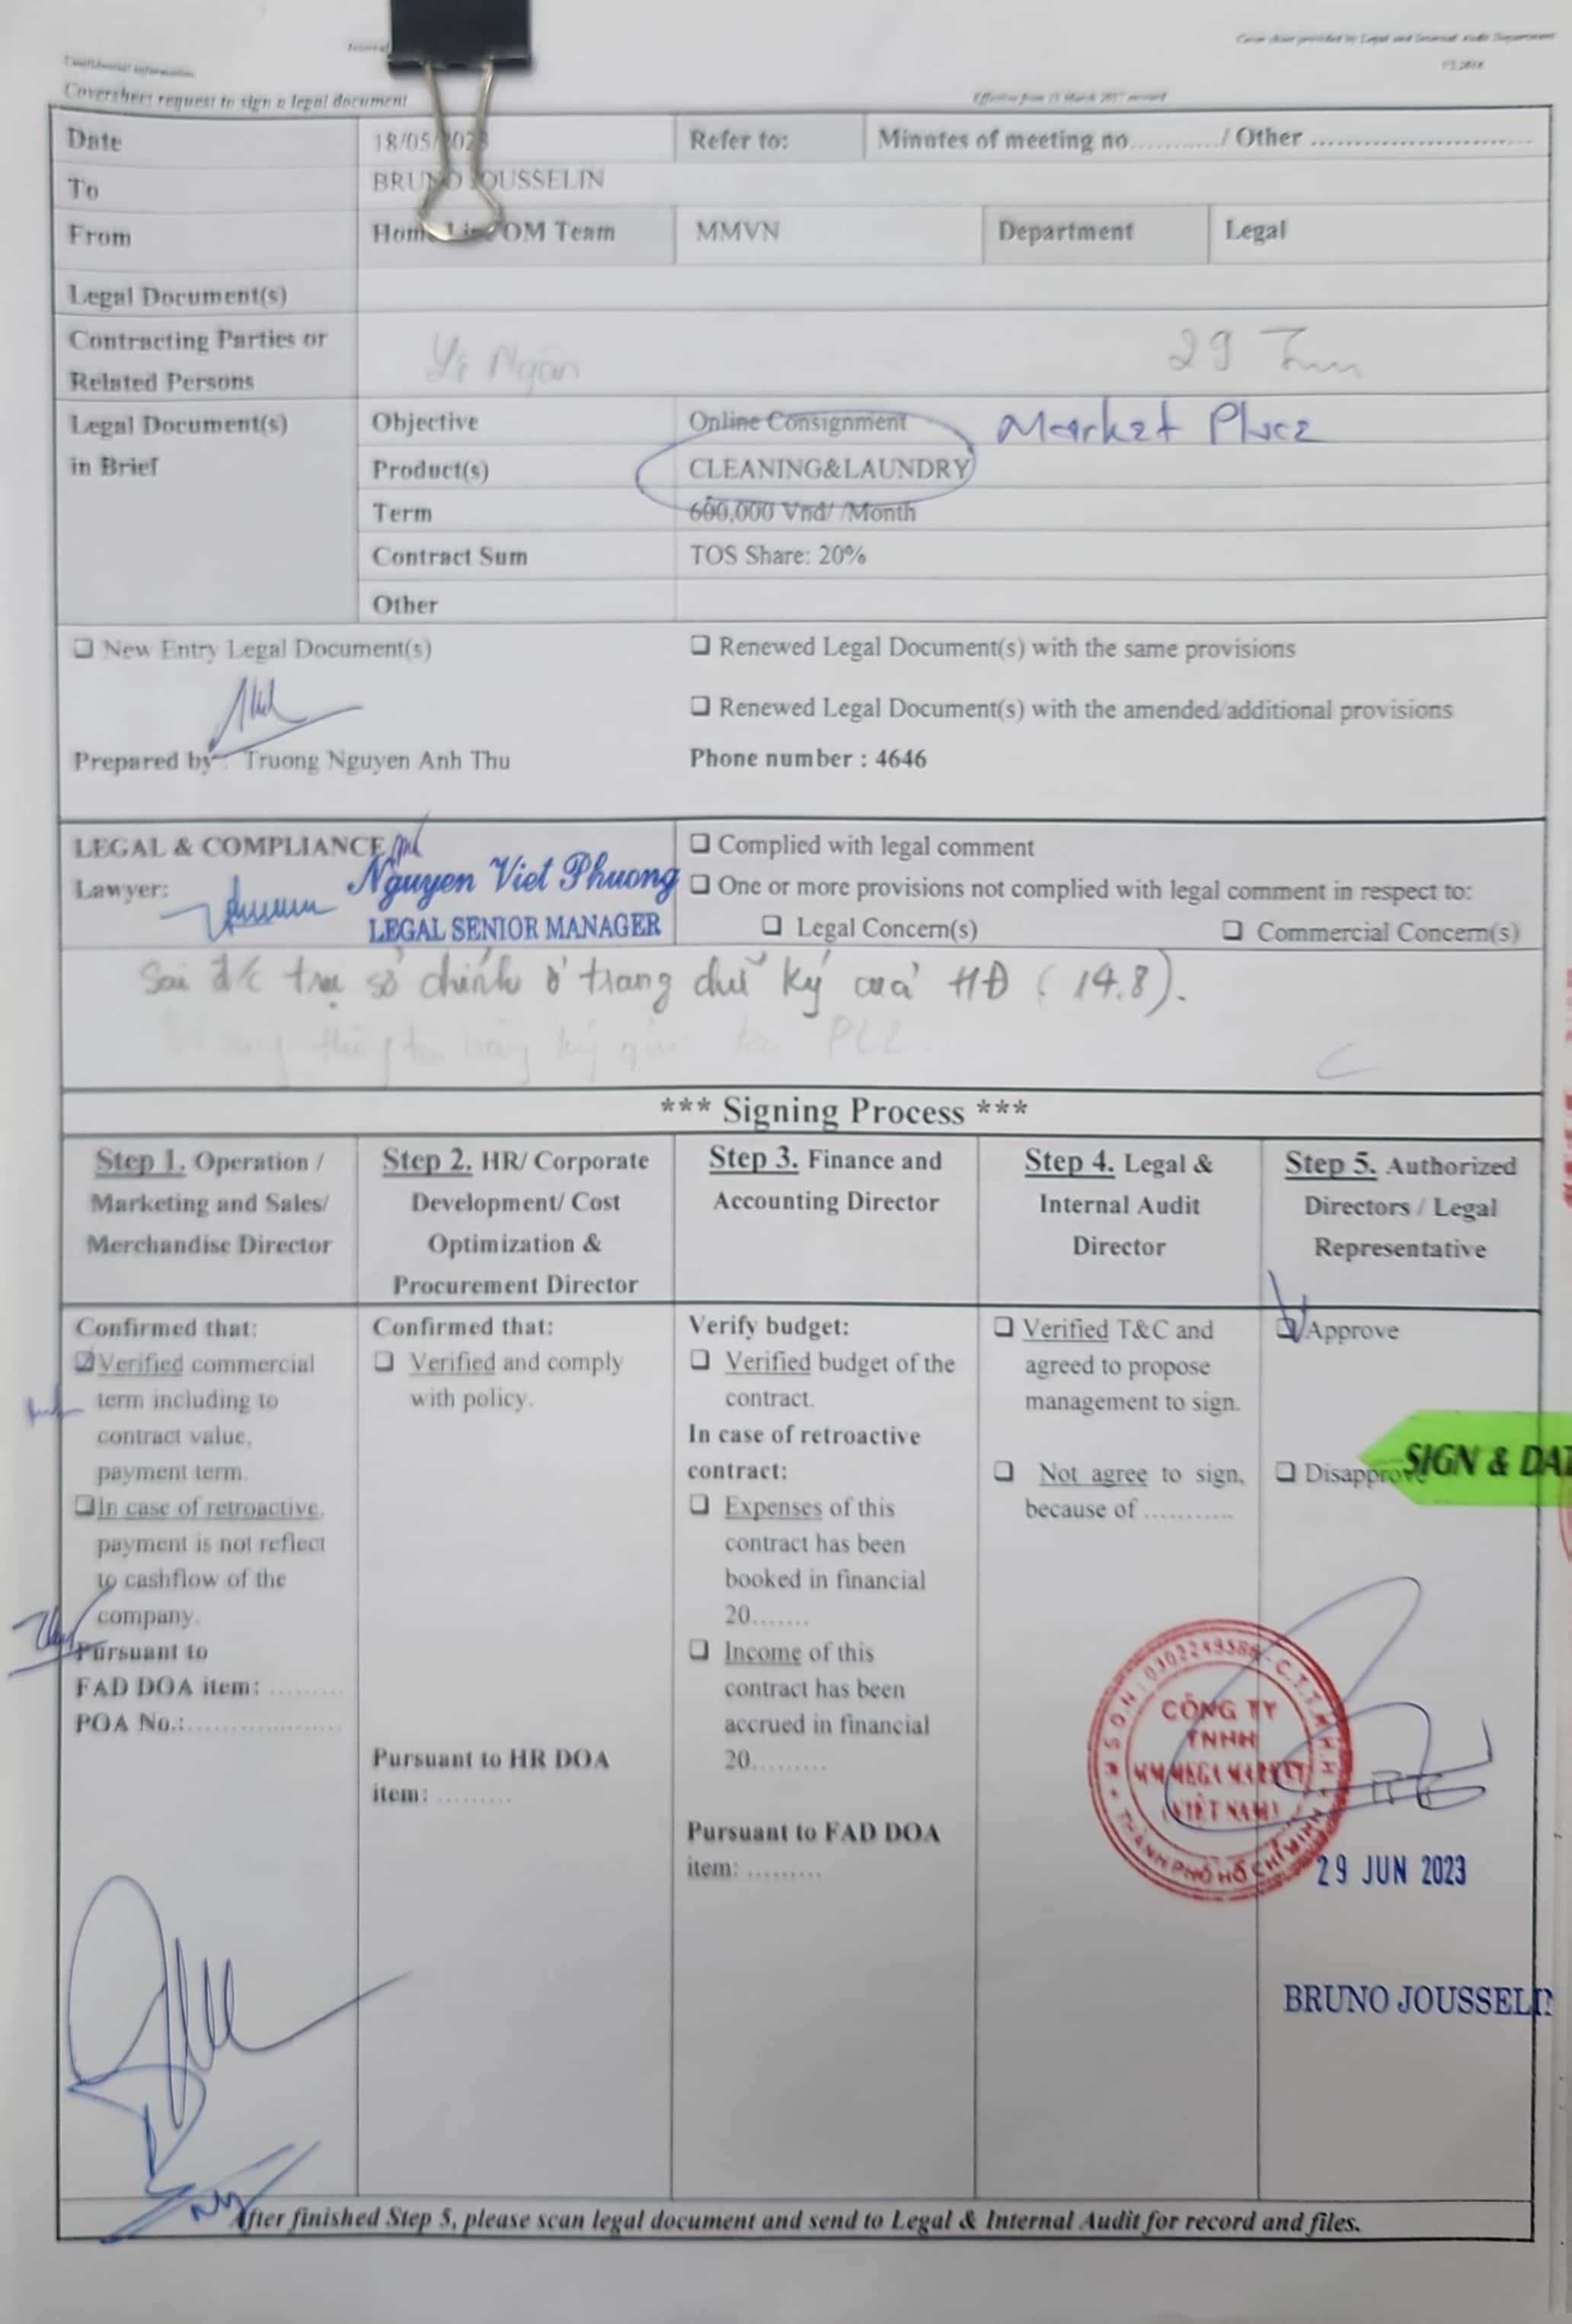 Confidential information
Cover sheet provided by Legal and Internal Audit Department
Coversheet request to sign a legal document
Effective from 15 March 2017 onward
Date 18/05/2023 Refer to: Minutes of meeting no.........../ Other ..........................
To BRUNO JOUSSELIN
From Home OM Team MMVN Department Legal
Legal Document(s)
Contracting Parties or Related Persons Ngân 29
Legal Document(s) in Brief
Objective Online Consignment Market Place
Product(s) CLEANING&LAUNDRY
Term 600,000 Vnd/ /Month
Contract Sum TOS Share: 20%
Other
❑ New Entry Legal Document(s)
❑ Renewed Legal Document(s) with the same provisions
❑ Renewed Legal Document(s) with the amended/additional provisions
Prepared by : Truong Nguyen Anh Thu
Phone number : 4646
LEGAL & COMPLIANCE
Lawyer:
Nguyen Viet Phuong
LEGAL SENIOR MANAGER
❑ Complied with legal comment
❑ One or more provisions not complied with legal comment in respect to:
❑ Legal Concern(s) ❑ Commercial Concern(s)
Sai đ/c trụ sở chính ở trang chữ ký của HĐ (14.8).
*** Signing Process ***
Step 1. Operation /
Marketing and Sales/
Merchandise Director
Step 2. HR/ Corporate
Development/ Cost
Optimization &
Procurement Director
Step 3. Finance and
Accounting Director
Step 4. Legal &
Internal Audit
Director
Step 5. Authorized
Directors / Legal
Representative
Confirmed that:
☑Verified commercial
term including to
contract value,
payment term.
❑In case of retroactive,
payment is not reflect
to cashflow of the
company.
Pursuant to
FAD DOA item: .........
POA No.:...................
Confirmed that:
❑ Verified and comply
with policy.
Pursuant to HR DOA
item: .........
Verify budget:
❑ Verified budget of the
contract.
In case of retroactive
contract:
❑ Expenses of this
contract has been
booked in financial
20.......
❑ Income of this
contract has been
accrued in financial
20.........
Pursuant to FAD DOA
item: .........
❑ Verified T&C and
agreed to propose
management to sign.
❑ Not agree to sign,
because of ...........
☑ Approve
❑ Disapprove
SIGN & DAT
M.S.D.N: 0302249586 - C.T.T.N.H.H
CÔNG TY
TNHH
MM MEGA MARKET
(VIỆT NAM)
THÀNH PHỐ HỒ CHÍ MINH
29 JUN 2023
BRUNO JOUSSELIN
After finished Step 5, please scan legal document and send to Legal & Internal Audit for record and files.